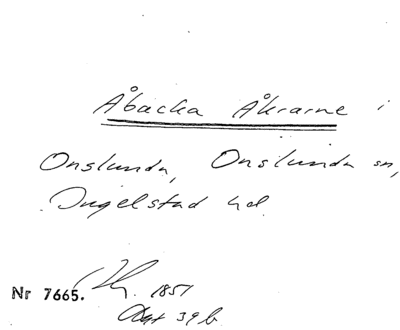 Åbacka Åkrarne i
Onslunda, Onslunda sn,
Ingelstad hd
1851
Nr 7665.
Akt 39 b